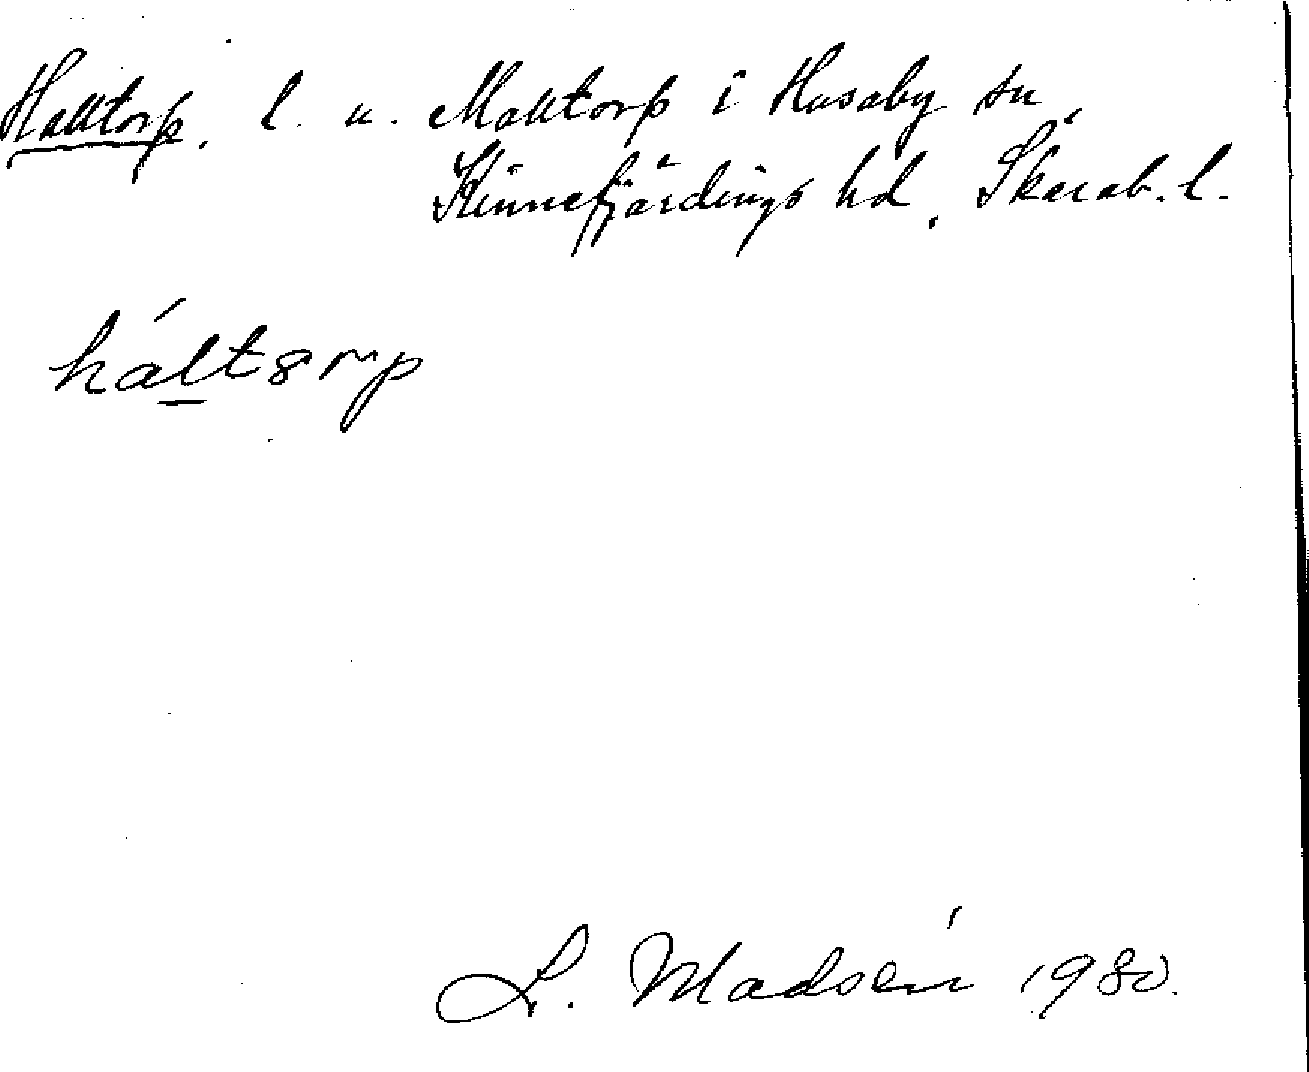 Halltorp, l. u. Malltorp i Husaby sn,
Kinnefjärdings hd, Skarab. l.
háltorp
L. Madsén 1980.